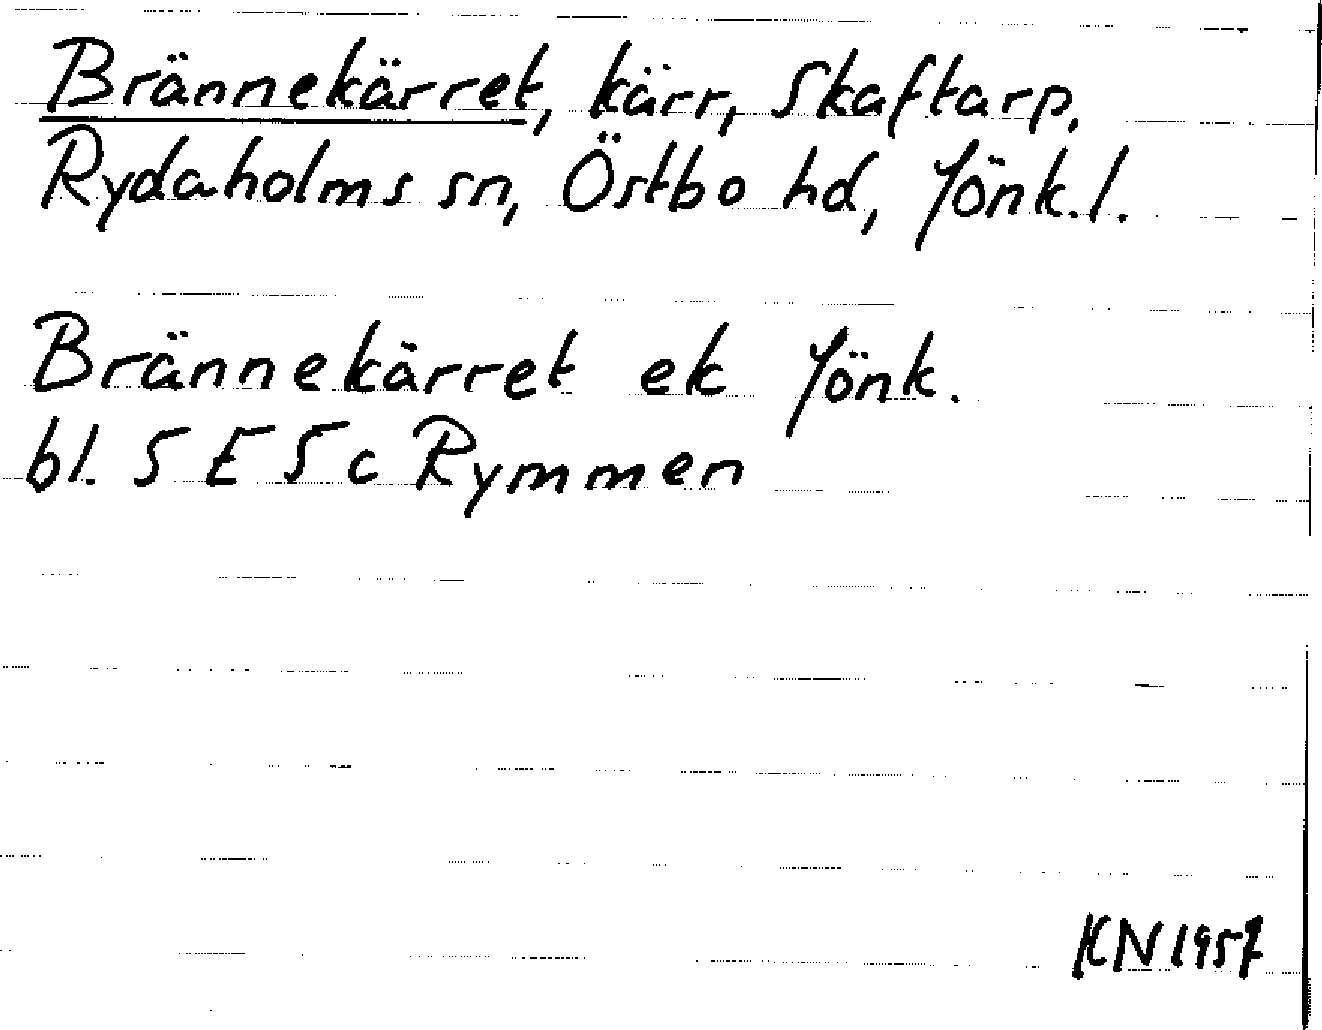 Brännekärret, kärr, Skaftarp,
Rydaholms sn, Östbo hd, Jönk.l.
Brännekärret ek Jönk.
bl. 5 E 5 c Rymmen
KN 1957